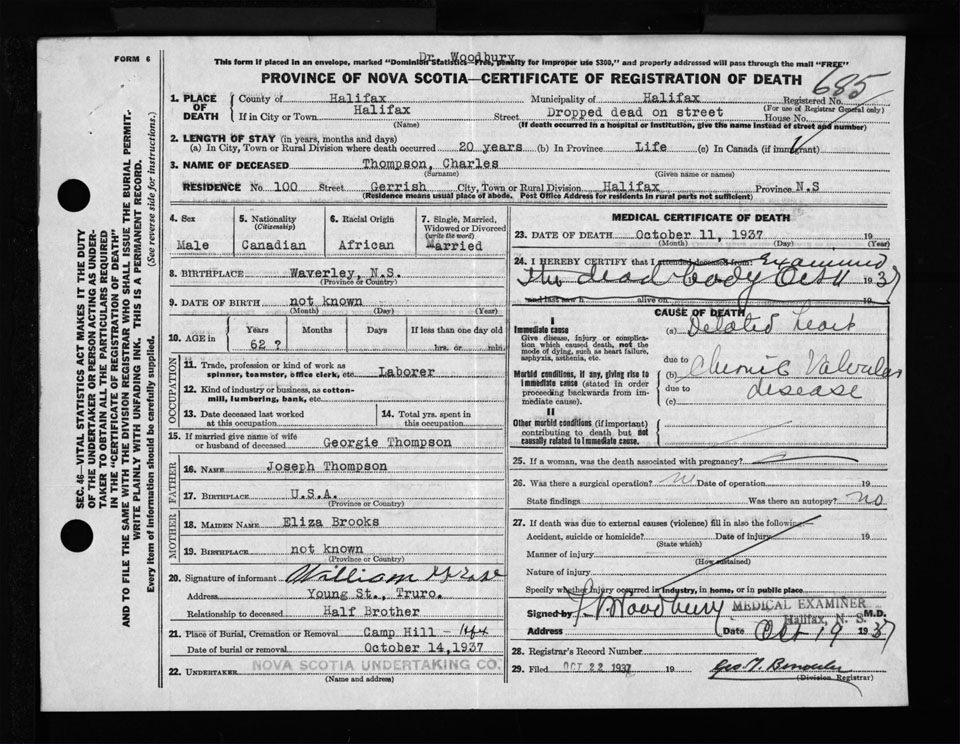 Dr. Woodbury
FORM 6
This form if placed in an envelope, marked "Dominion Statistics—Free, penalty for improper use $300," and properly addressed will pass through the mail "FREE"
PROVINCE OF NOVA SCOTIA—CERTIFICATE OF REGISTRATION OF DEATH
685
1. PLACE OF DEATH
County of Halifax Municipality of Halifax Registered No.
(For use of Registrar General only)
If in City or Town Halifax Street Dropped dead on street House No.
(Name) (If death occurred in a hospital or institution, give the name instead of street and number)
2. LENGTH OF STAY (in years, months and days)
(a) In City, Town or Rural Division where death occurred 20 years (b) In Province Life (c) In Canada (if immigrant)
3. NAME OF DECEASED Thompson, Charles
(Surname) (Given name or names)
RESIDENCE No. 100 Street Gerrish City, Town or Rural Division Halifax Province N.S
(Residence means usual place of abode. Post Office Address for residents in rural parts not sufficient)
4. Sex
Male
5. Nationality
(Citizenship)
Canadian
6. Racial Origin
African
7. Single, Married, Widowed or Divorced
(write the word)
Married
8. BIRTHPLACE Waverley, N.S.
(Province or Country)
9. DATE OF BIRTH not known
(Month) (Day) (Year)
10. AGE in
Years Months Days If less than one day old
62 ? hrs. or min.
OCCUPATION
11. Trade, profession or kind of work as spinner, teamster, office clerk, etc. Laborer
12. Kind of industry or business, as cotton-mill, lumbering, bank, etc.
13. Date deceased last worked at this occupation
14. Total yrs. spent in this occupation
15. If married give name of wife or husband of deceased Georgie Thompson
FATHER
16. NAME Joseph Thompson
17. BIRTHPLACE U.S.A.
(Province or Country)
MOTHER
18. MAIDEN NAME Eliza Brooks
19. BIRTHPLACE not known
(Province or Country)
20. Signature of informant William
Address Young St., Truro.
Relationship to deceased Half Brother
21. Place of Burial, Cremation or Removal Camp Hill - Hfx
Date of burial or removal October 14, 1937
22. UNDERTAKER NOVA SCOTIA UNDERTAKING CO.
(Name and address)
MEDICAL CERTIFICATE OF DEATH
23. DATE OF DEATH October 11, 1937 19
(Month) (Day) (Year)
24. I HEREBY CERTIFY that I attended deceased from: Examined
the dead body Oct 11 1937
and last saw h alive on 19
CAUSE OF DEATH
I
Immediate cause
Give disease, injury or complication which caused death, not the mode of dying, such as heart failure, asphyxia, asthenia, etc.
(a) Delated heart
due to
Morbid conditions, if any, giving rise to immediate cause (stated in order proceeding backwards from immediate cause).
(b) Chronic Valvular
due to disease
(c)
II
Other morbid conditions (if important) contributing to death but not causally related to immediate cause.
25. If a woman, was the death associated with pregnancy?
26. Was there a surgical operation? Date of operation 19
State findings Was there an autopsy? no
27. If death was due to external causes (violence) fill in also the following:
Accident, suicide or homicide? Date of injury 19
(State which)
Manner of injury
(How sustained)
Nature of injury
Specify whether injury occurred in industry, in home, or in public place
Signed by Woodbury MEDICAL EXAMINER M.D.
Halifax, N. S.
Address Date Oct 19 1937
28. Registrar's Record Number
29. Filed OCT 22 1937 19
(Division Registrar)
SEC. 46—VITAL STATISTICS ACT MAKES IT THE DUTY
OF THE UNDERTAKER OR PERSON ACTING AS UNDER-
TAKER TO OBTAIN ALL THE PARTICULARS REQUIRED
IN THE "CERTIFICATE OF REGISTRATION OF DEATH"
AND TO FILE THE SAME WITH THE DIVISION REGISTRAR WHO SHALL ISSUE THE BURIAL PERMIT.
WRITE PLAINLY WITH UNFADING INK. THIS IS A PERMANENT RECORD.
Every item of information should be carefully supplied. (See reverse side for instructions.)